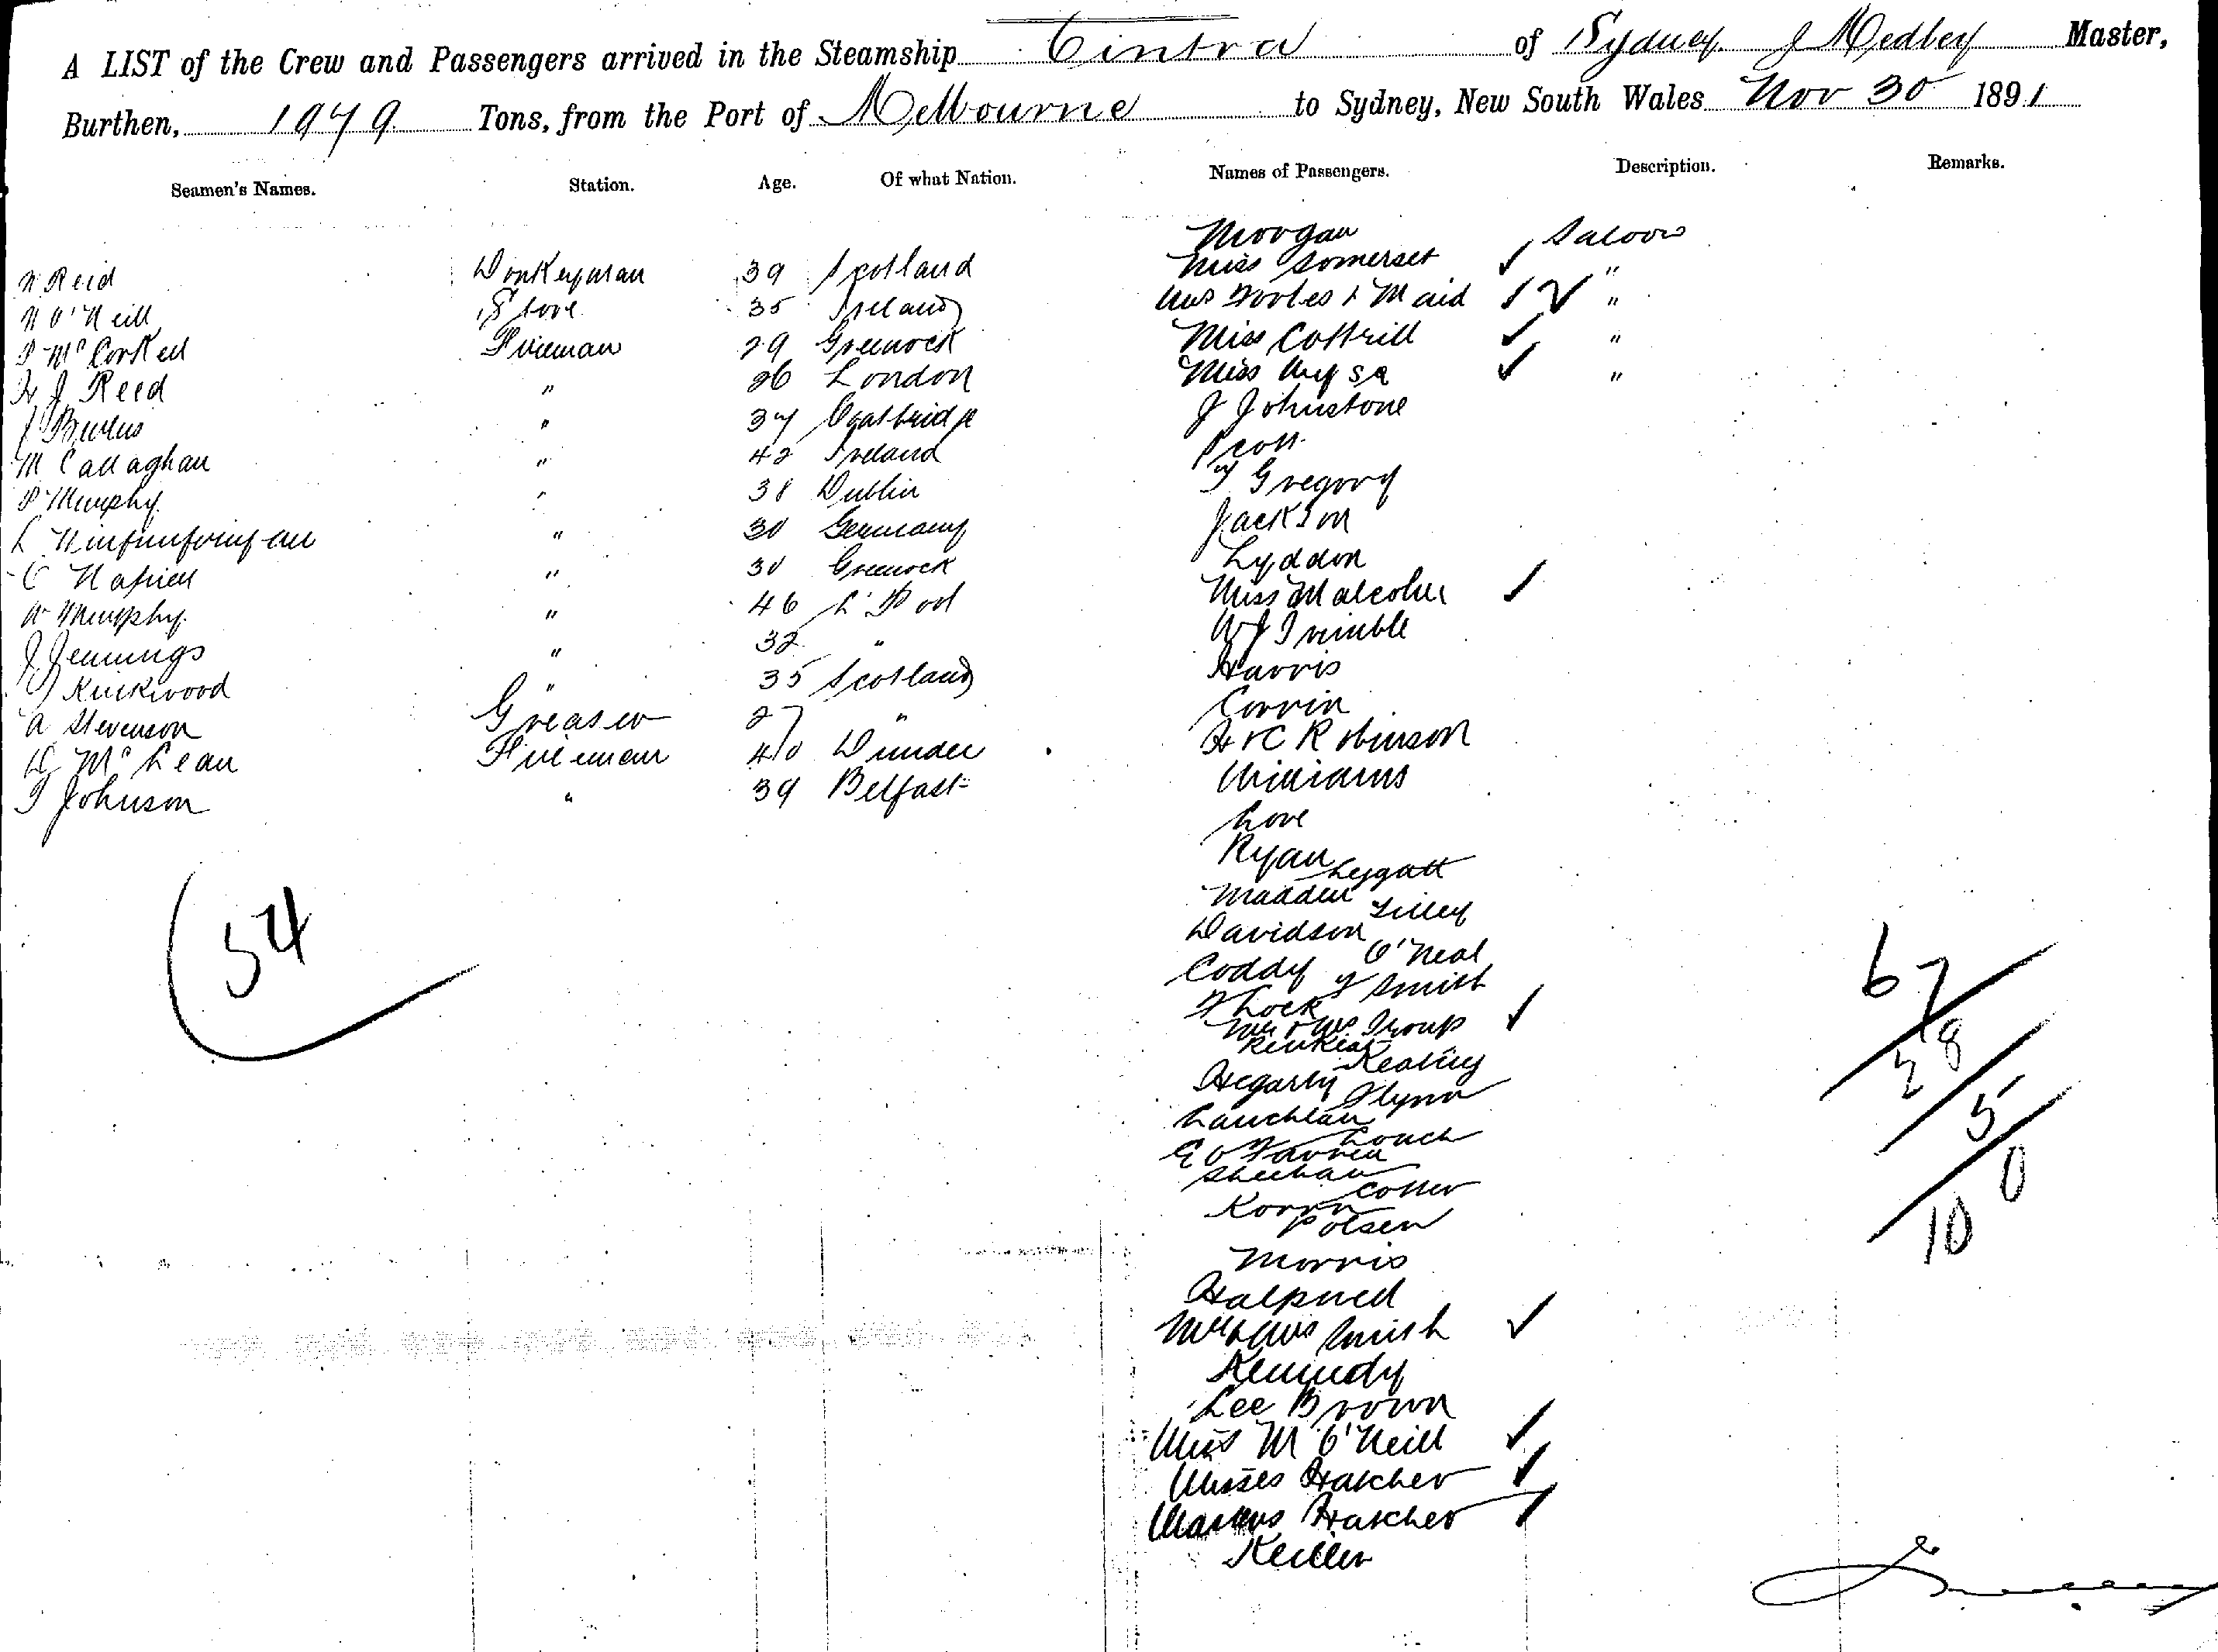 A LIST of the Crew and Passengers arrived in the Steamship Cintra of Sydney J Medley Master,
Burthen, 1979 Tons, from the Port of Melbourne to Sydney, New South Wales Nov 30 1891
Seamen's Names. Station. Age. Of what Nation. Names of Passengers. Description. Remarks.
Morgan Saloon
N Reid Donkeyman 39 Scotland
Miss Somerset ✓ "
N O'Neill Store 35 Ireland
Mrs & Maid 1 ✓ "
P McCorkell Fireman 29 Greenock
Miss Cottrill ✓ "
H J Reed " 26 London
Miss ✓ "
J " 37 Coatbridge
J Johnstone
M Callaghan " 42 Ireland
Scott
P Murphy " 38 Dublin
Gregory
L " 30 Germany
Jackson
C Napier " 30 Greenock
Lyddon
W Murphy " 46 L'Pool
Miss Malcolm ✓
J Jennings " 32 "
W J Trimble
Kirkwood " 35 Scotland
Harris
A Stevenson Greaser 27 "
Corrin
D McLean Fireman 40 Dundee
H & C Robinson
T Johnson " 39 Belfast
Williams
Love
Ryan
Leggatt
Madden
Lilley
Davidson
O'Neal
Coddy
Smith
F Lock
Mr & Mrs Troup ✓
Keating
Hegarty
Flynn
Lauchlan
Sheehan
Cotter
Polsen
Morris
Mr & Mrs Smith ✓
Kennedy
Lee Brown
Miss M O'Neill ✓
Misses Hatcher ✓
Masters Hatcher ✓
Keiller
54
67
28
5
0
10